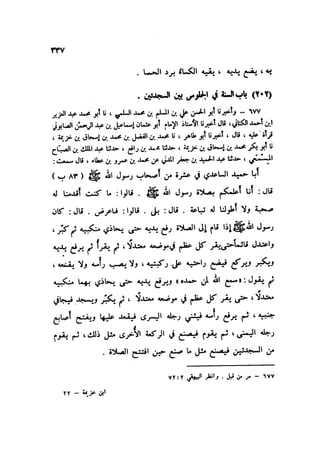 ٣٣٧
به ، يضع يديه ، يقيه الكساء برد الحصا .
(٢٠٢) باب السنة في الجلوس بين السجدتين .
٦٧٧ — وأخبرنا أبو الحسن علي بن المسلم بن محمد السلمي ، نا أبو محمد عبد العزيز
ابن أحمد الكتاني، قال أخبرنا الأستاذ الإمام أبو عثمان إسماعيل بن عبد الرحمن الصابوني
قراءة عليه ، قال ، أخبرنا أبو طاهر ، نا محمد بن الفضل بن محمد بن إسحاق بن خزيمة ،
نا أبو بكر محمد بن إسحاق بن خزيمة ، حدثنا محمد بن رافع ، حدثنا عبد الملك بن الصباح
المسمعي ، حدثنا عبد الحميد بن جعفر المدني عن محمد بن عمرو بن عطاء ، قال : سمعت
أبا حميد الساعدي في عشرة من أصحاب رسول الله ﷺ ( ٨٣ ب )
قال : أنا أعلمكم بصلاة رسول الله ﷺ . قالوا : ما كنت أقدمنا له
صحبة ولا أطولنا له تباعة . قال : بلى . قالوا : فاعرض . قال : كان
رسول الله ﷺ إذا قام إلى الصلاة رفع يديه حتى يحاذي منكبيه ثم كبر ،
واعتدل قائما حتى يقر كل عظم في موضعه معتدلا ، ثم يقرأ ثم يرفع يديه
ويكبر ويركع فيضع راحتيه على ركبتيه ، ولا يصب رأسه ولا يقنعه ،
ثم يقول « سمع الله لمن حمده» ويرفع يديه حتى يحاذي بهما منكبيه
معتدلا ، حتى يقر كل عظم في موضعه معتدلا ، ثم يكبر ويسجد فيجافي
جنبيه ، ثم يرفع رأسه فيثني رجله اليسرى فيقعد عليها ويفتح أصابع
رجله اليمنى ، ثم يقوم فيصنع في الركعة الأخرى مثل ذلك ، ثم يقوم
من السجدتين فيصنع مثل ما صنع حين افتتح الصلاة .
٦٧٧ — مر من قبل . وانظر البيهقي ٢ : ٧٢
ابن خزيمة — ٢٢